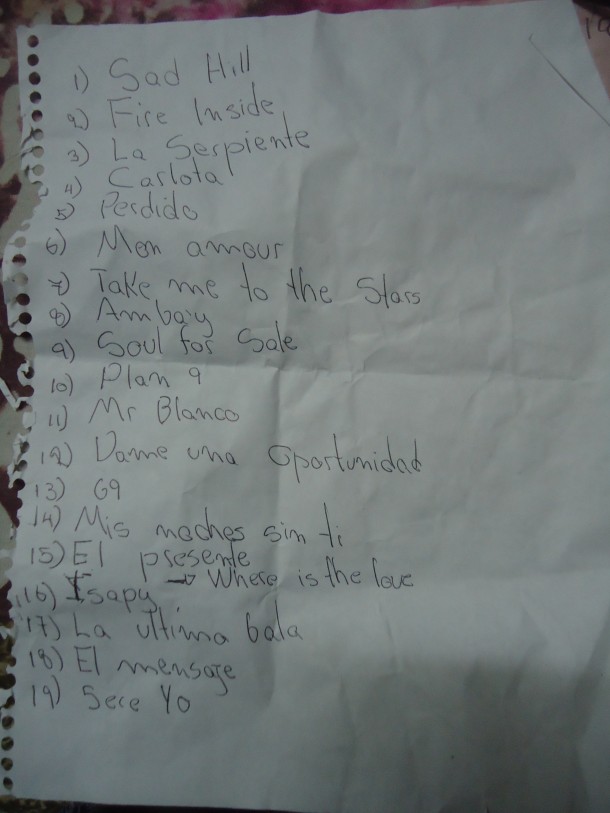 1) Sad Hill
2) Fire Inside
3) La Serpiente
4) Carlota
5) Perdido
6) Mon amour
7) Take me to the Stars
8) Ambay
9) Soul for Sale
10) Plan 9
11) Mr Blanco
12) Dame una Oportunidad
13) 69
14) Mis noches sin ti
15) El presente
16) Isapy → Where is the love
17) La ultima bala
18) El mensaje
19) Sere Yo